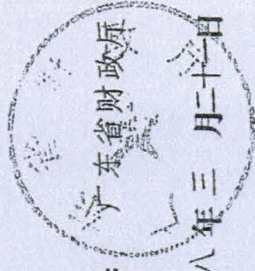 广东省财政厅
八年三月二十一日